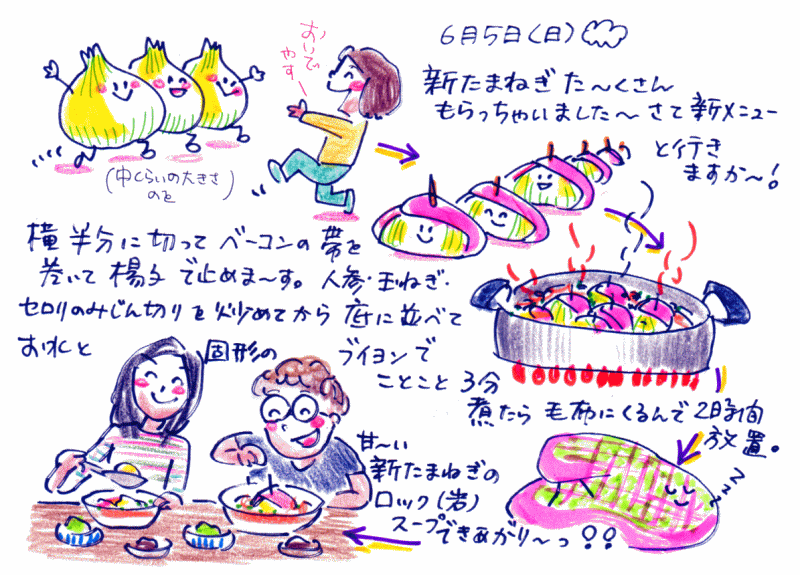 6月5日(日)
おいで
やすー
新たまねぎ た〜くさん
もらっちゃいました〜 さて新メニュー
と行き
ますか〜!
(中くらいの大きさ
のを)
横半分に切って ベーコンの帯を
巻いて 楊子で止めま〜す。人参・玉ねぎ・
セロリのみじん切りを炒めてから 底に並べて
お水と 固形の ブイヨンで
ことこと 3分
煮たら 毛布にくるんで 2時間
放置。
zzz
甘〜い
新たまねぎの
ロック(岩)
スープできあがり〜っ!!